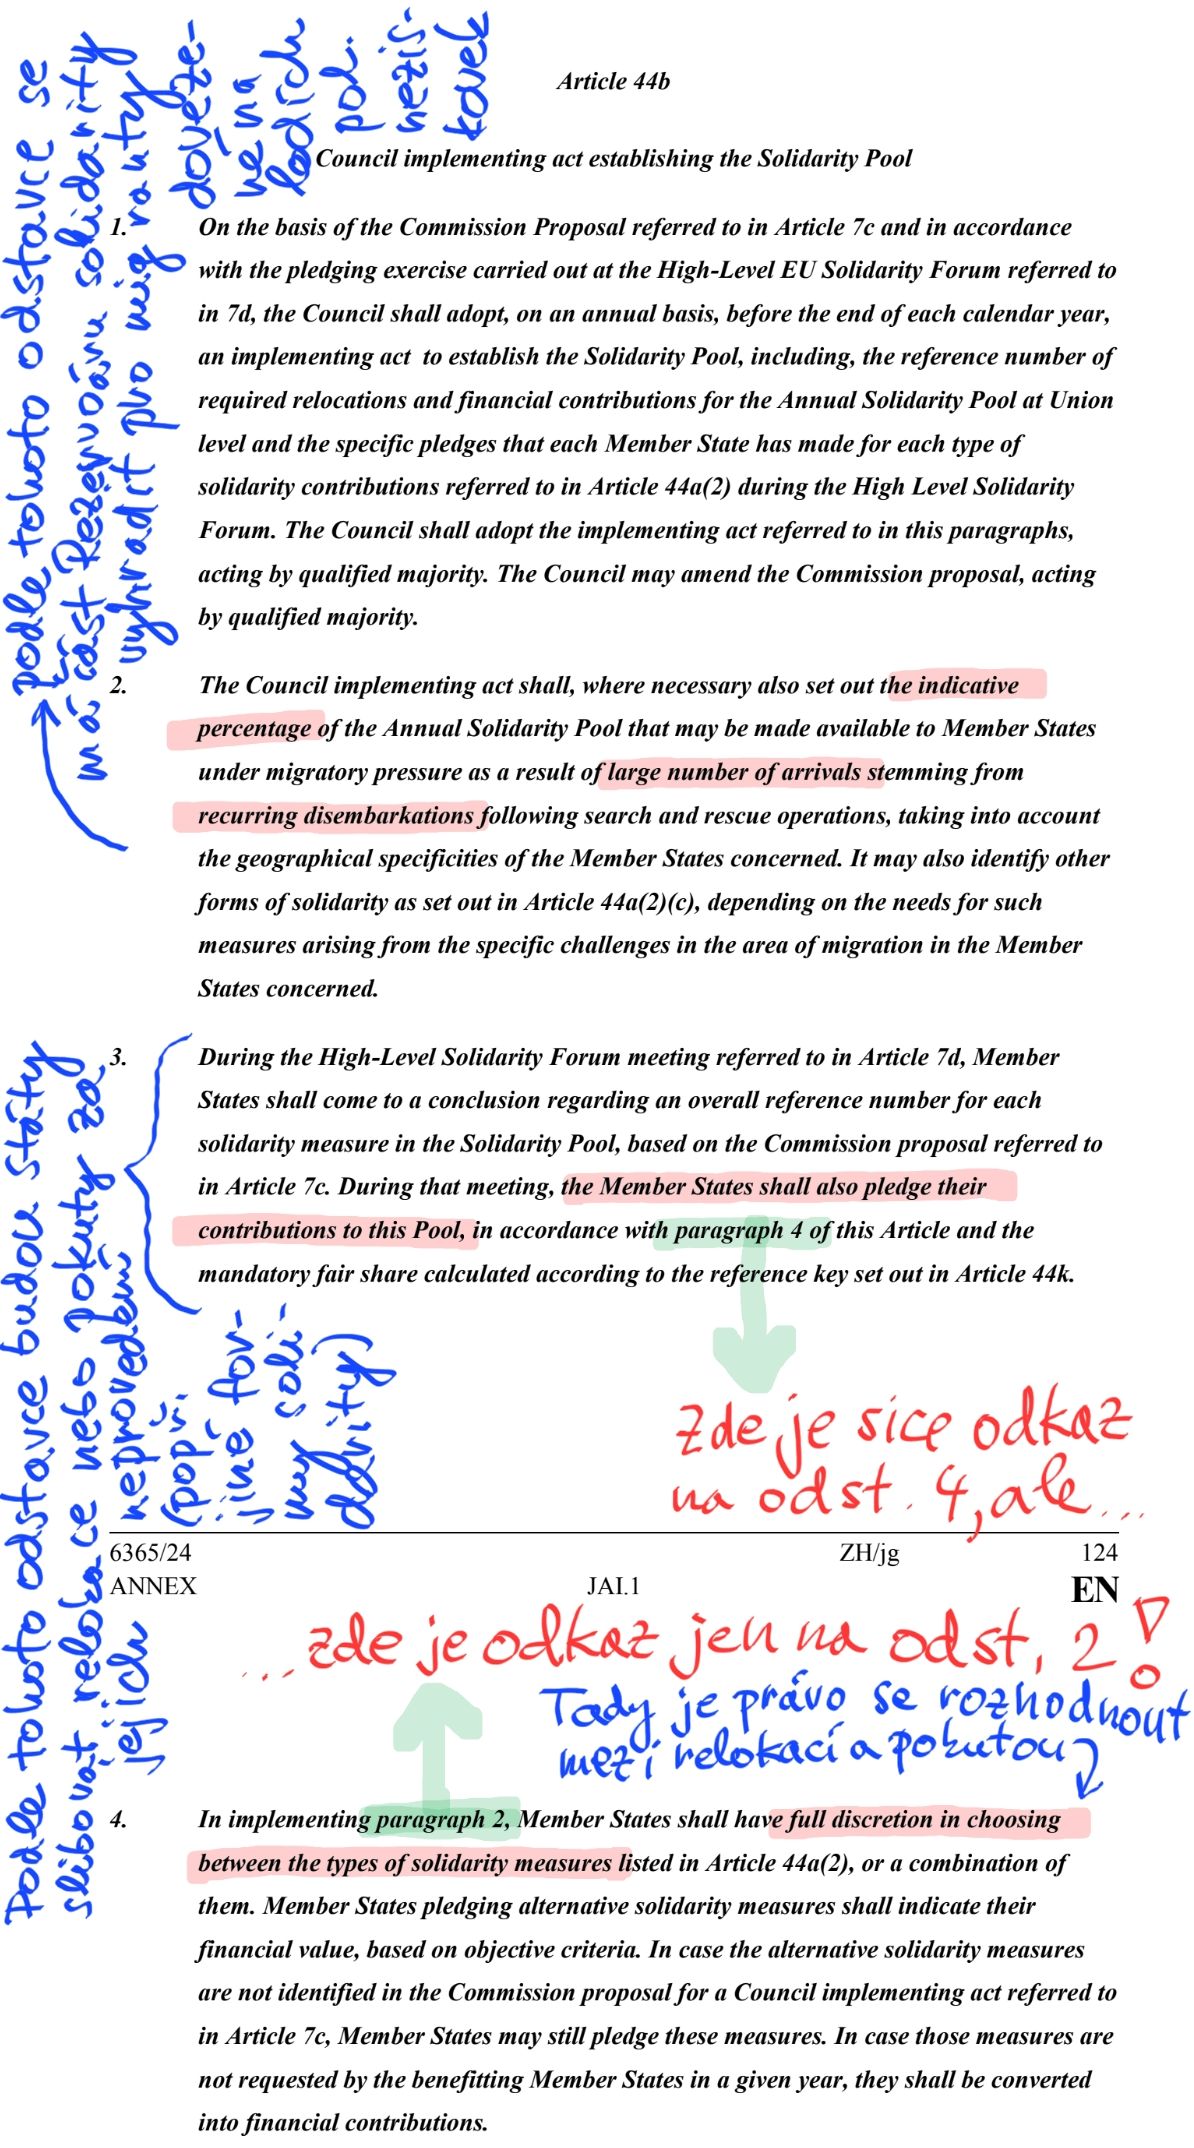 podle tohoto odstavce se
má část Rezervoáru solidarity
vyhradit pro migranty
doveze-
né na
lodích
pol.
nezis-
kovek
Article 44b
Council implementing act establishing the Solidarity Pool
1. On the basis of the Commission Proposal referred to in Article 7c and in accordance
with the pledging exercise carried out at the High-Level EU Solidarity Forum referred to
in 7d, the Council shall adopt, on an annual basis, before the end of each calendar year,
an implementing act to establish the Solidarity Pool, including, the reference number of
required relocations and financial contributions for the Annual Solidarity Pool at Union
level and the specific pledges that each Member State has made for each type of
solidarity contributions referred to in Article 44a(2) during the High Level Solidarity
Forum. The Council shall adopt the implementing act referred to in this paragraphs,
acting by qualified majority. The Council may amend the Commission proposal, acting
by qualified majority.
2. The Council implementing act shall, where necessary also set out the indicative
percentage of the Annual Solidarity Pool that may be made available to Member States
under migratory pressure as a result of large number of arrivals stemming from
recurring disembarkations following search and rescue operations, taking into account
the geographical specificities of the Member States concerned. It may also identify other
forms of solidarity as set out in Article 44a(2)(c), depending on the needs for such
measures arising from the specific challenges in the area of migration in the Member
States concerned.
Podle tohoto odstavce budou státy
slibovat relokace nebo pokuty za
jejich neprovedení
(popř.
jiné for-
my soli-
darity)
3. During the High-Level Solidarity Forum meeting referred to in Article 7d, Member
States shall come to a conclusion regarding an overall reference number for each
solidarity measure in the Solidarity Pool, based on the Commission proposal referred to
in Article 7c. During that meeting, the Member States shall also pledge their
contributions to this Pool, in accordance with paragraph 4 of this Article and the
mandatory fair share calculated according to the reference key set out in Article 44k.
Zde je sice odkaz
na odst. 4, ale...
6365/24 ZH/jg 124
ANNEX JAI.1 EN
...zde je odkaz jen na odst. 2!
Tady je právo se rozhodnout
mezi relokací a pokutou
4. In implementing paragraph 2, Member States shall have full discretion in choosing
between the types of solidarity measures listed in Article 44a(2), or a combination of
them. Member States pledging alternative solidarity measures shall indicate their
financial value, based on objective criteria. In case the alternative solidarity measures
are not identified in the Commission proposal for a Council implementing act referred to
in Article 7c, Member States may still pledge these measures. In case those measures are
not requested by the benefitting Member States in a given year, they shall be converted
into financial contributions.